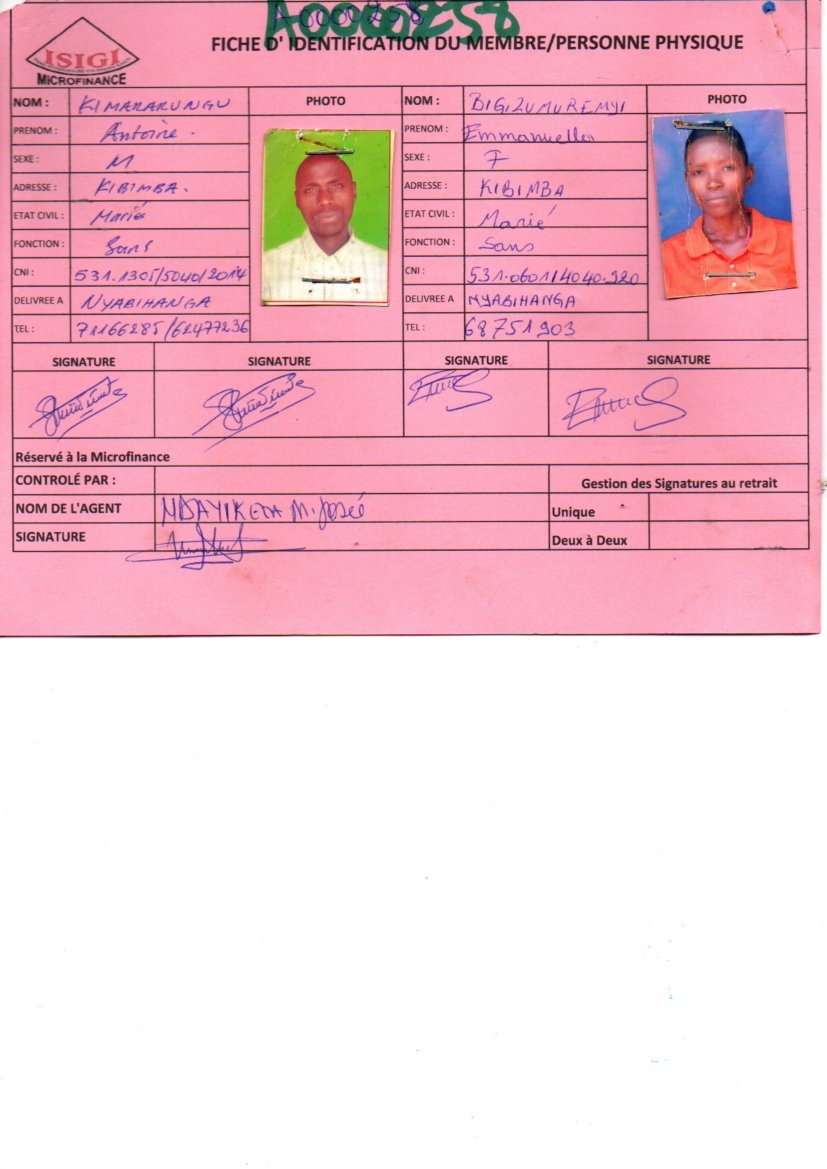 A0000258
A0000258
ISIGI
MICROFINANCE
FICHE D' IDENTIFICATION DU MEMBRE/PERSONNE PHYSIQUE
NOM : KIMARARUNGU
PHOTO
NOM : BIGIZUMUREMYI
PHOTO
PRENOM : Antoine.
PRENOM : Emmanuella
SEXE : M
SEXE : F
ADRESSE : KIBIMBA.
ADRESSE : KIBIMBA
ETAT CIVIL : Marié
ETAT CIVIL : Marié
FONCTION : Sans
FONCTION : Sans
CNI : 531.1305/5040/2014
CNI : 531.0601/4040.920
DELIVREE A NYABIHANGA
DELIVREE A NYABIHANGA
TEL : 71166285/62477236
TEL : 68751903
SIGNATURE SIGNATURE SIGNATURE SIGNATURE
Réservé à la Microfinance
CONTROLÉ PAR :
Gestion des Signatures au retrait
NOM DE L'AGENT NDAYIKEZA M. Josée
Unique
SIGNATURE
Deux à Deux